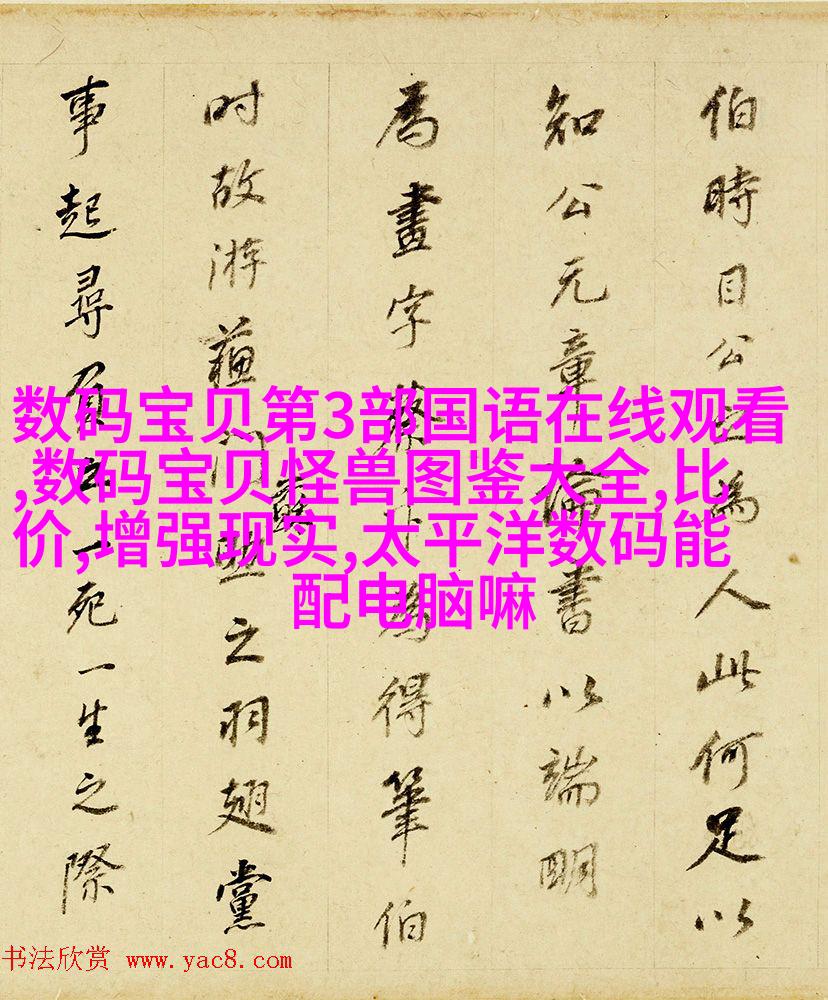 伯時目公之為人此何足以
知公元章論書以端明
為畫字蔡為得筆伯
时故游蘓门之羽翅黨
事起尋負一死一生之際
数码宝贝第3部国语在线观看
,数码宝贝怪兽图鉴大全,比
价,增强现实,太平洋数码能
配电脑嘛
书法欣赏 www.yac8.com